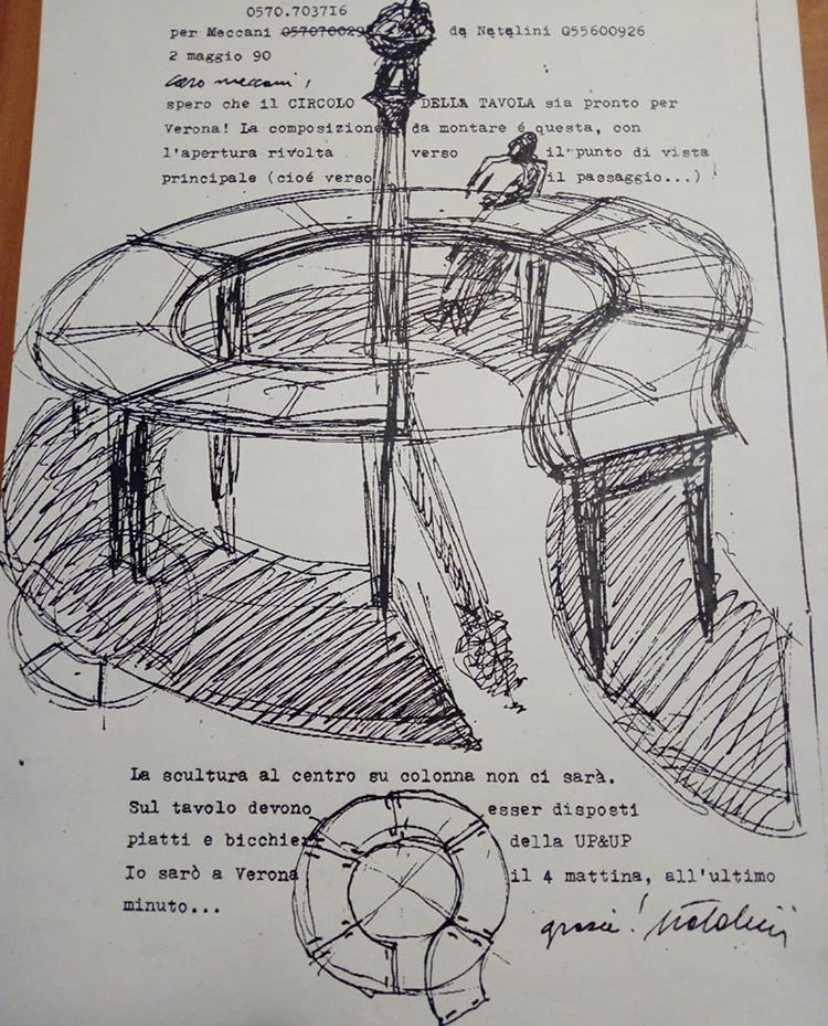 0570.703716
per Meccani 05707002 da Natalini 055600926
2 maggio 90
caro meccani,
spero che il CIRCOLO DELLA TAVOLA sia pronto per
Verona! La composizione da montare é questa, con
l'apertura rivolta verso il punto di vista
principale (cioé verso il passaggio...)
La scultura al centro su colonna non ci sarà.
Sul tavolo devono esser disposti
piatti e bicchieri della UP&UP
Io sarò a Verona il 4 mattina, all'ultimo
minuto...
grazie! Natalini